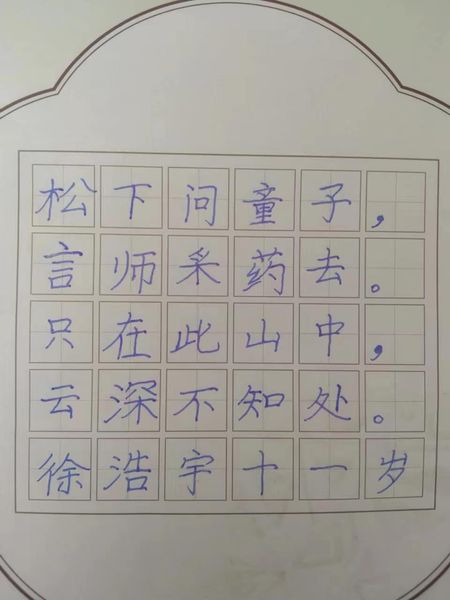 松下问童子，
言师采药去。
只在此山中，
云深不知处。
徐浩宇十一岁